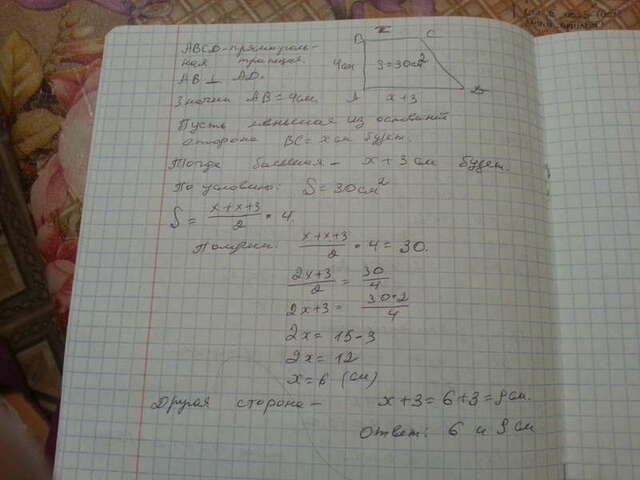 ABCD - прямоуголь-
ная трапеция.
AB ⊥ AD.
Значит AB = 4 см.
B x C
4см S = 30см²
A x+3 D
Пусть меньшая из оснований
сторона BC = x см будет.
Тогда большая - x + 3 см будет.
По условию: S = 30 см²
S = (x+x+3)/2 • 4.
Получим: (x+x+3)/2 • 4 = 30.
(2x+3)/2 = 30/4
2x+3 = (30•2)/4
2x = 15-3
2x = 12
x = 6 (см)
Другая сторона - x+3 = 6+3 = 9 см.
Ответ: 6 и 9 см